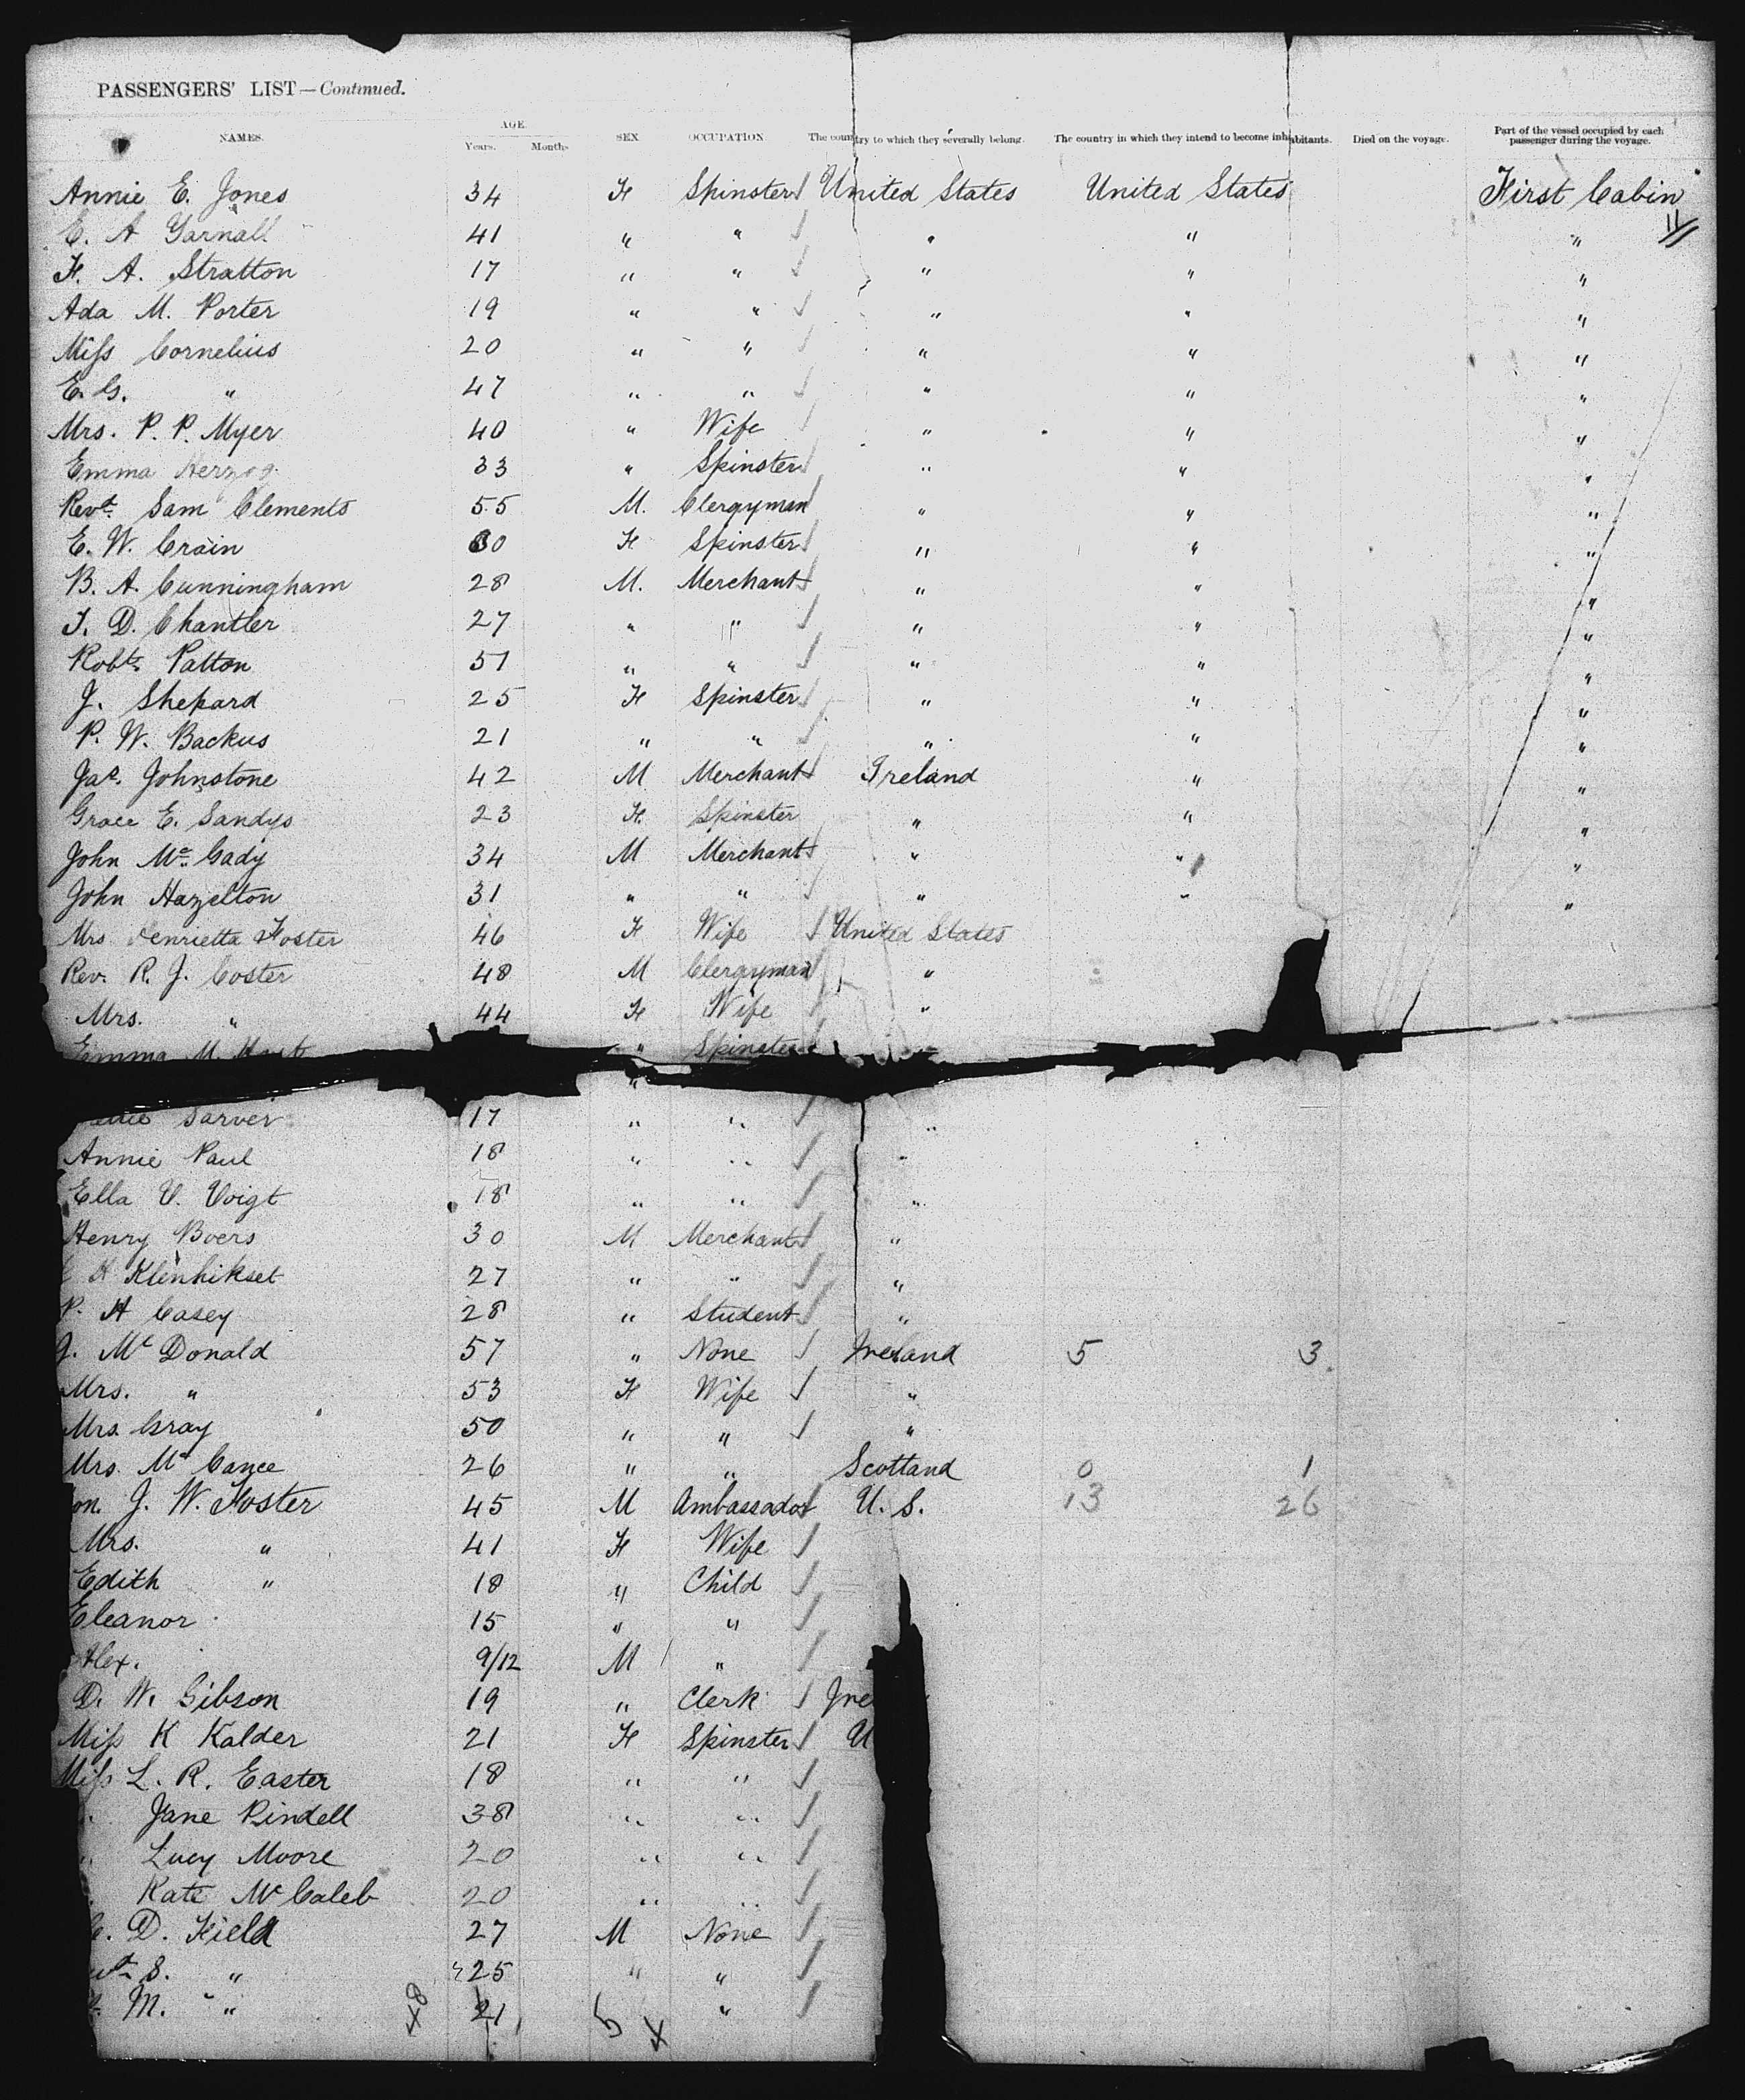 PASSENGERS' LIST—Continued.
NAMES. AGE. Years. Months SEX OCCUPATION The country to which they severally belong. The country in which they intend to become inhabitants. Died on the voyage. Part of the vessel occupied by each passenger during the voyage.
Annie E. Jones 34 F Spinster United States United States First Cabin
E. A Yarnall 41 " " " " "
F. A. Stratton 17 " " " " "
Ada M. Porter 19 " " " " "
Miss Cornelius 20 " " " " "
E. G. " 47 " " " " "
Mrs. P. P. Myer 40 " Wife " " "
Emma Herzog 33 " Spinster " " "
Revd. Sam Clements 55 M. Clergyman " " "
E. W. Crain 30 F Spinster " " "
B. A. Cunningham 28 M. Merchant " " "
T. D. Chantler 27 " " " " "
Robt. Patton 51 " " " " "
J. Shepard 25 F Spinster " " "
P. W. Backus 21 " " " " "
Jas. Johnstone 42 M Merchant Ireland " "
Grace E. Sandys 23 F. Spinster " " "
John Mc. Cady 34 M Merchant " " "
John Hazelton 31 " " " " "
Mrs Henrietta Foster 46 F Wife United States
Rev. R. J. Coster 48 M Clergyman "
Mrs. " 44 F Wife "
Emma M. " Spinster
"
Sarver 17 " " "
Annie Paul 18 " " "
Ella V. Voigt 18 " " "
Henry Boers 30 M Merchant "
H Klenhikset 27 " " "
P. H Casey 28 " Student "
J. Mc Donald 57 " None Ireland 5 3
Mrs. " 53 F Wife "
Mrs. Gray 50 " " "
Mrs. Mc Cance 26 " " Scotland 0 1
on. J. W. Foster 45 M Ambassador U. S. 13 26
Mrs. " 41 F Wife
Edith " 18 " Child
Eleanor 15 " "
Alex. 9/12 M "
D. W. Gibson 19 " Clerk Ire
Miss K Kalder 21 F Spinster U
Miss L. R. Easter 18 " "
Jane Pindell 38 " "
Lucy Moore 20 " "
Kate Mc Caleb 20 " "
C. D. Field 27 M None
S. " 25 " "
M. " 21 "